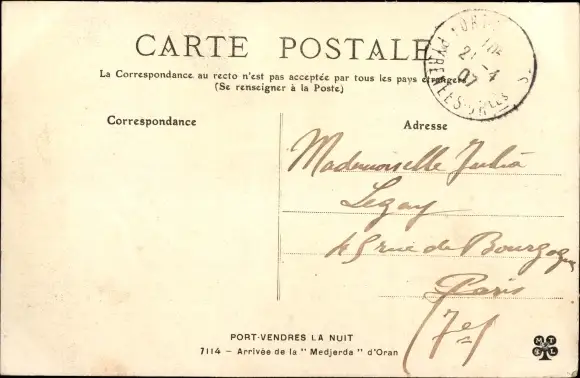 CARTE POSTALE
La Correspondance au recto n'est pas acceptée par tous les pays étrangers
(Se renseigner à la Poste)
PORT
PYRÉNÉES-ORles
10E
21-4
07
Correspondance
Adresse
Mademoiselle Julia
Legay
45 rue de Bourgogne
Paris
(7e)
PORT-VENDRES LA NUIT
7114 — Arrivée de la " Medjerda " d'Oran
M T
I L